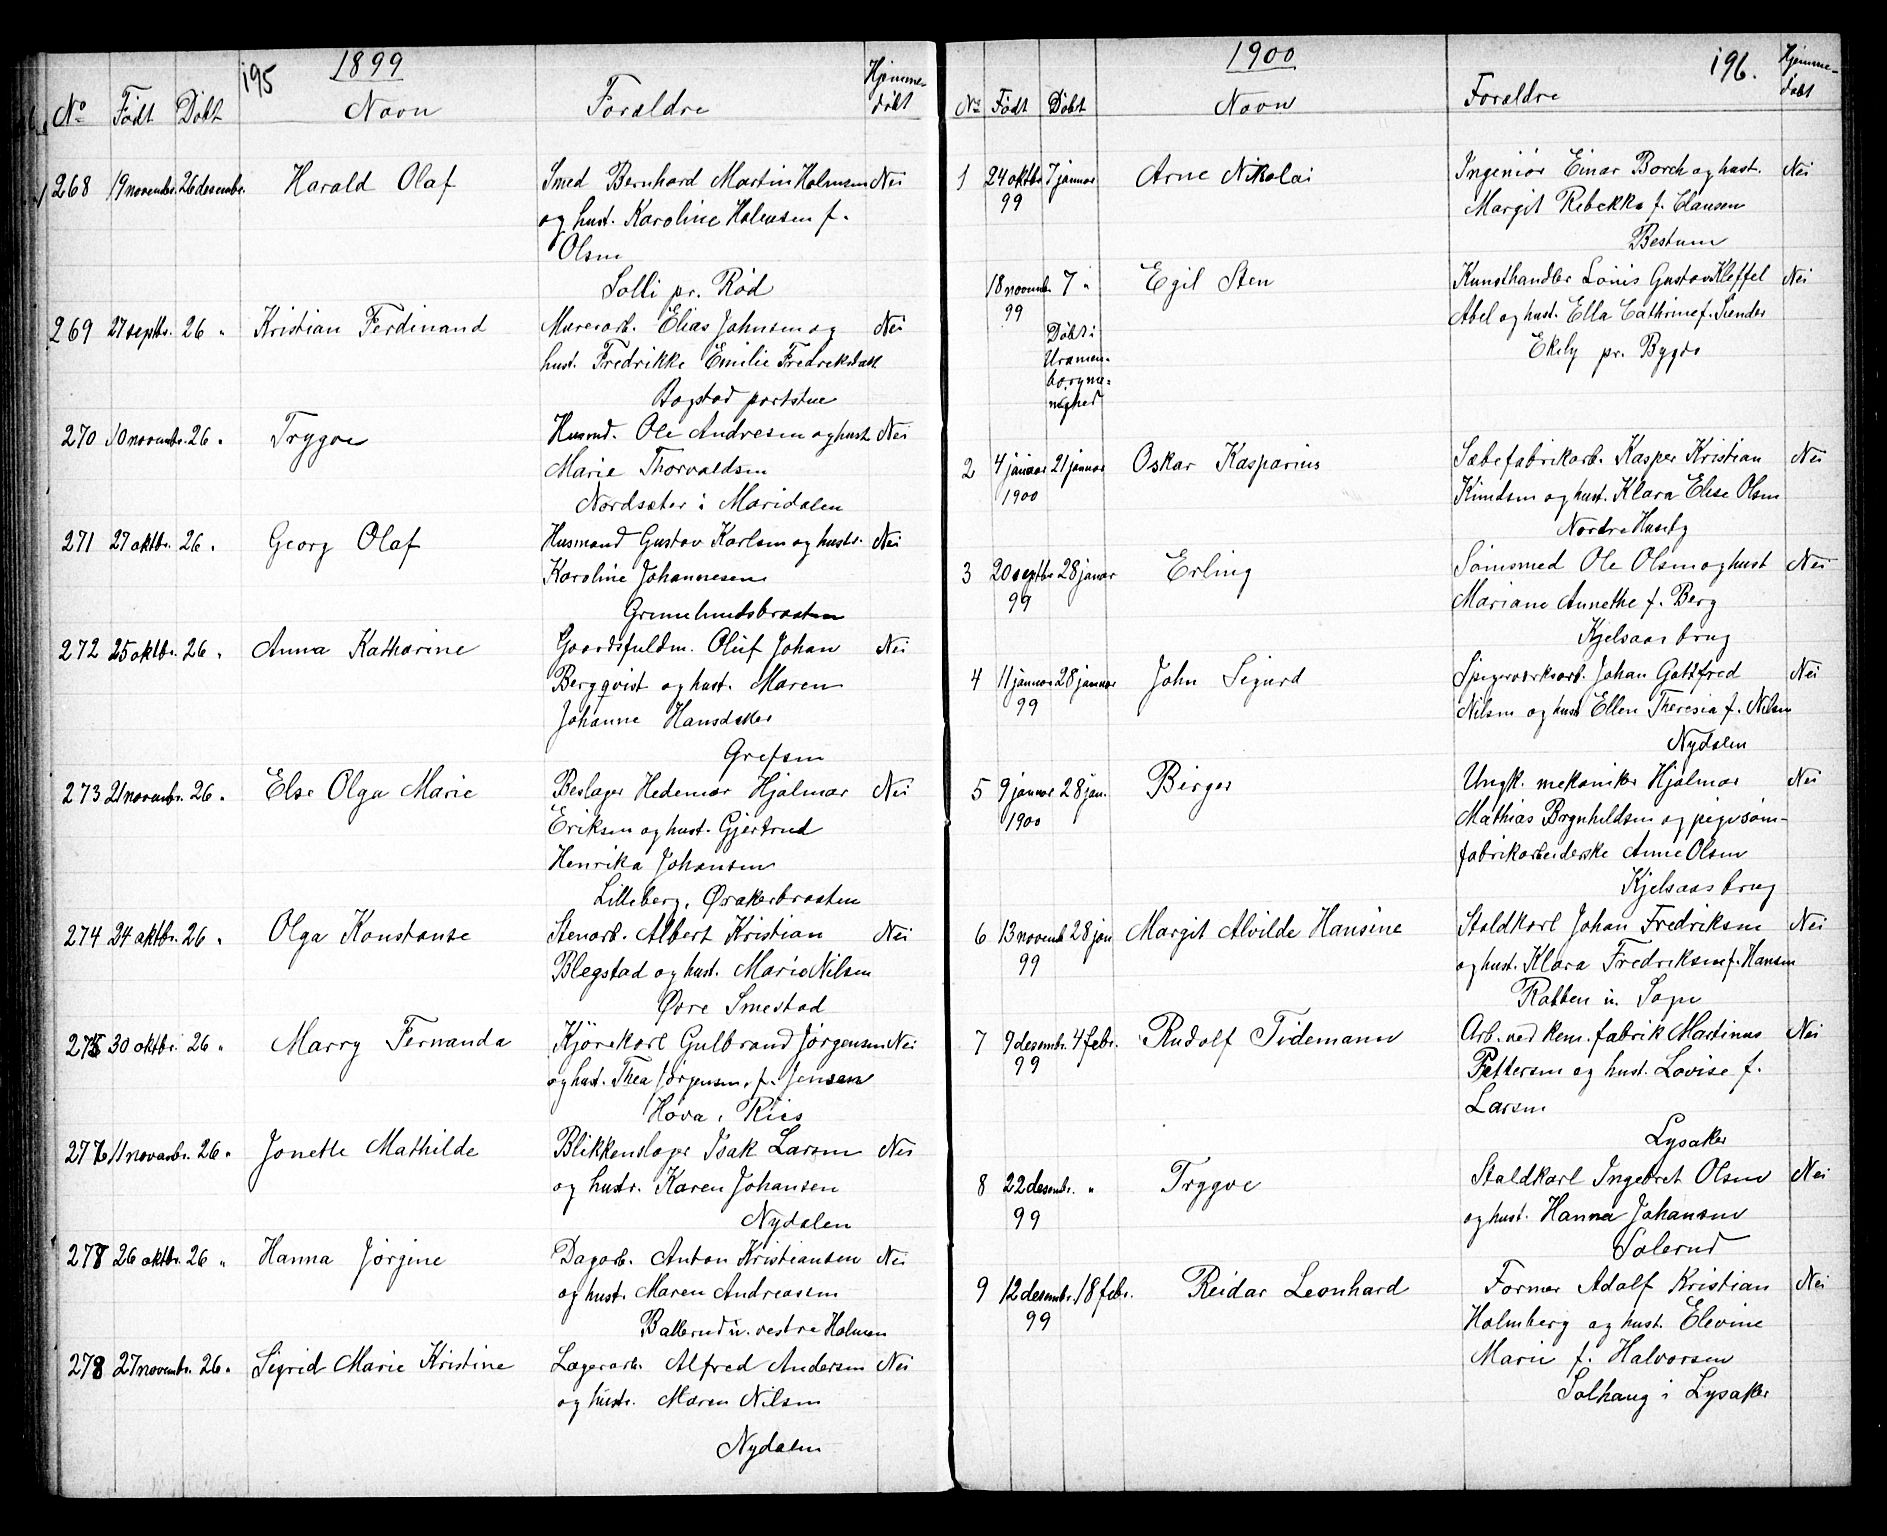 195 1899
No Født Døbt Navn Forældre Hjemmedøbt
268 19 novembr. 26 desembr. Harald Olaf Smed Bernhard Martin Holmsen Nei
og hust. Karoline Holmsen f.
Olsen
Solli pr. Röd
269 27 septbr. 26 " Kristian Ferdinand Murerarb. Elias Johnsen og Nei
hust. Fredrikke Emilie
Bogstad portstue
270 10 novembr. 26 " Trygve Husmd. Ole Andresen og hust. Nei
Marie Thorvaldsen
Nordsæter i Maridalen
271 27 oktbr. 26 " Georg Olaf Husmand Gustav Karlsen og hustr. Nei
Karoline Johannesen
Grimelundsbraaten
272 25 oktbr. 26 " Anna Katharine Gaardsfuldm. Oluf Johan Nei
Bergqvist og hust. Maren
Johanne Hansdatter
Grefsen
273 21 novembr. 26 " Else Olga Marie Beslager Hedemar Hjalmar Nei
Eriksen og hust. Gjertrud
Henrika Johansen
Lilleberg, Ørakerbraaten
274 24 oktbr. 26 " Olga Konstanse Stenarb. Albert Kristian Nei
Blegstad og hust. Marie Nilsen
Øvre Smestad
275 30 oktbr. 26 " Marry Fernanda Kjørekarl Gulbrand Jørgensen Nei
og hust. Thea Jørgensen f. Jensen
Hova i Riis
276 11 novembr. 26 " Jonette Mathilde Blikkenslager Isak Larsen Nei
og hustr. Karen Johansen
Nydalen
277 26 oktbr. 26 " Hanna Jørgine Dagarb. Anton Kristiansen Nei
og hust. Maren Andreassen
Ballerud u. vestre Holmen
278 27 novembr. 26 " Sigrid Marie Kristine Lagerarb. Alfred Andersen Nei
og hustr. Maren Nilsen
Nydalen
1900 196.
No Født Døbt Navn Forældre Hjemmedøbt
1 24 oktbr. 7 januar Arne Nikolai Ingeniør Einar Borch og hust. Nei
99 Margit Rebekka f. Clausen
Bestum
18 novembr. 7 " Egil Sten Kunsthandler Louis Gustav Kleffel Nei
99 Abel og hust. Ella Cathrine f.
Døbt i
Uranien-
borgme-
nighed
Ekely pr. Bygdø
2 4 januar 21 januar Oskar Kasparius Sæbefabrikarb. Kasper Kristian Nei
1900 Knudsen og hust. Klara Elise Olsen
Nordre Huseby
3 20 septbr 28 januar Erling Sømsmed Ole Olsen og hust Nei
99 Mariane Annethe f. Berg
Kjelsaas brug
4 11 januar 28 januar John Sigurd Spigerverksarb. Johan Gottfred Nei
99 Nilsen og hust Ellen Theresia f. Nilsen
Nydalen
5 9 januar 28 jan. Birger Ungk. mekaniker Hjalmar Nei
1900 Mathias Brynhildsen og pige søm-
fabrikarbeiderske Anne Olsen
Kjelsaas brug
6 13 novemb 28 jan Margit Alvilde Hansine Staldkarl Johan Fredriksen Nei
99 og hust. Klara Fredriksen f. Hansen
Rabben u. Sogn
7 9 desembr. 4 febr. Rudolf Tidemann Arb. ved kem. fabrik Martinus Nei
99 Pettersen og hust. Lovise f.
Larsen
Lysaker
8 22 desembr. " Trygve Staldkarl Ingebret Olsen Nei
99 og hust. Hanna Johansen
Solerud
9 12 desembr. 18 febr. Reidar Leonhard Former Adolf Kristian Nei
99 Holmberg og hust. Elevine
Marie f. Halvorsen
Solhaug i Lysaker